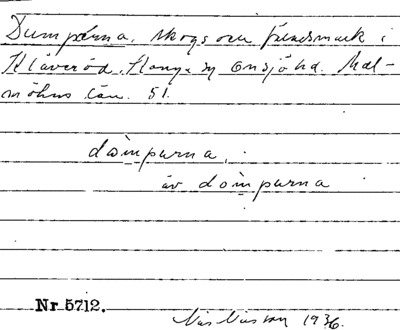 Dumparna, skogs och fruasmark i
Klåveröd, Stångs sn Onsjö hd. Mal-
möhus län. 51.
dom̀purna,
äv dom̀purna
Nr 5712.
Nils Nilsson 1936.